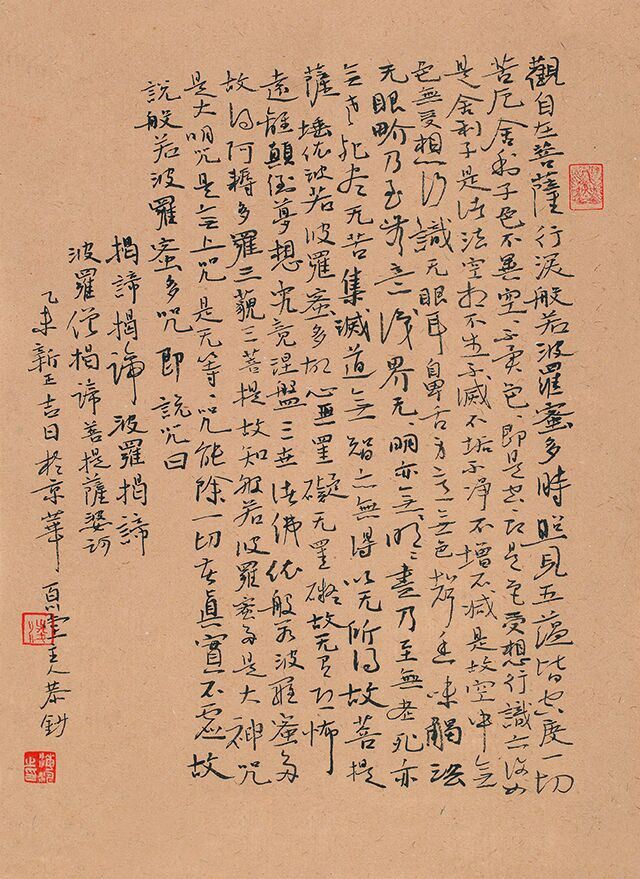 觀自在菩薩行深般若波羅蜜多時照見五蘊皆空度一切
苦厄舍利子色不異空空不異色色即是空空即是色受想行識亦復如
是舍利子是諸法空相不生不滅不垢不淨不增不減是故空中無
色無受想行識无眼耳鼻舌身意無色聲香味觸法
无眼界乃至无意識界无無明亦无無明盡乃至無老死亦
無老死盡无苦集滅道無智亦無得以无所得故菩提
薩埵依般若波羅蜜多故心無罣礙无罣礙故无有恐怖
遠離顛倒夢想究竟涅盤三世諸佛依般若波羅蜜多
故得阿耨多羅三藐三菩提故知般若波羅蜜多是大神咒
是大明咒是無上咒是无等等咒能除一切苦真實不虛故
說般若波羅蜜多咒即說咒曰
揭諦揭諦波羅揭諦
波羅僧揭諦菩提薩婆訶
乙未新正吉日於京華
主人恭鈔